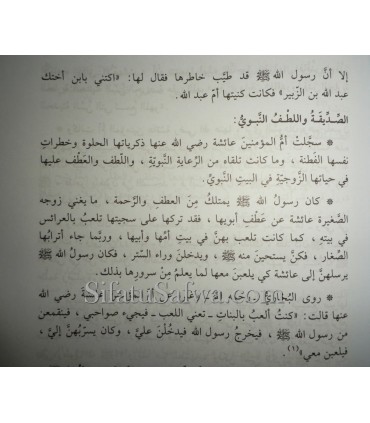 إلا أنَّ رسول الله ﷺ قد طيَّب خاطرها فقال لها: «اكتني بابن أختك
عبد الله بن الزُّبير» فكانت كنيتها أمّ عبد الله.
الصِّدِّيقَةُ واللطْفُ النَّبويُّ:
* سجَّلتْ أمُّ المؤمنين عائشة رضي الله عنها ذكرياتها الحلوة وخطرات
نفسها الفَطِنة، وما كانت تلقاه من الرِّعاية النبويّة، واللّطف والعَطْف عليها
في حياتها الزَّوجيّة في البيت النَّبويّ.
* كان رسولُ الله ﷺ يمتلكُ مِنَ العطفِ والرَّحمة، ما يغني زوجه
الصَّغيرة عائشة عن عَطْفِ أبويها، فقد تركها على سجيتها تلعبُ بالعرائس
في بيته، كما كانت تلعب بهنَّ في بيتِ أمِّها وأبيها، وربمَّا جاء أترابُها
الصِّغار، فكنَّ يستحيينَ منه ﷺ، ويدخلنَ وراء السّتر، فكان رسولُ الله ﷺ
يرسلهنَّ إلى عائشة كي يلعبنَ معها لما يعلمُ مِنْ سرورِها بذلك.
* روى البُخاريُّ رحمه الله وغيره رضي الله
عنها قالت: «كنتُ ألعبُ بالبناتِ ـ تعني اللعب ـ فيجيء صواحبي، فينقمعن
من رسول الله ﷺ، فيخرجُ رسول الله فيدخُلْنَ عليَّ، وكان يسرّبهنَّ إليَّ،
فيلعبن معي»(١).
SifatuSafwa.com